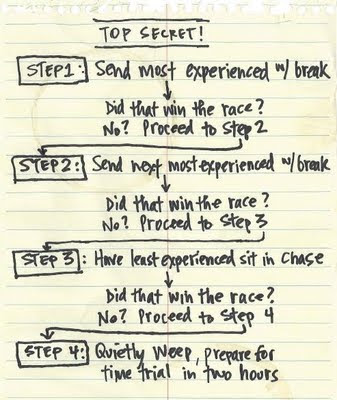 TOP SECRET!
STEP 1: Send most experienced w/ break
Did that win the race?
No? Proceed to Step 2
STEP 2: Send next most experienced w/ break
Did that win the race?
No? Proceed to Step 3
STEP 3: Have least experienced sit in chase
Did that win the race?
No? Proceed to Step 4
STEP 4: Quietly weep, prepare for
time trial in two hours